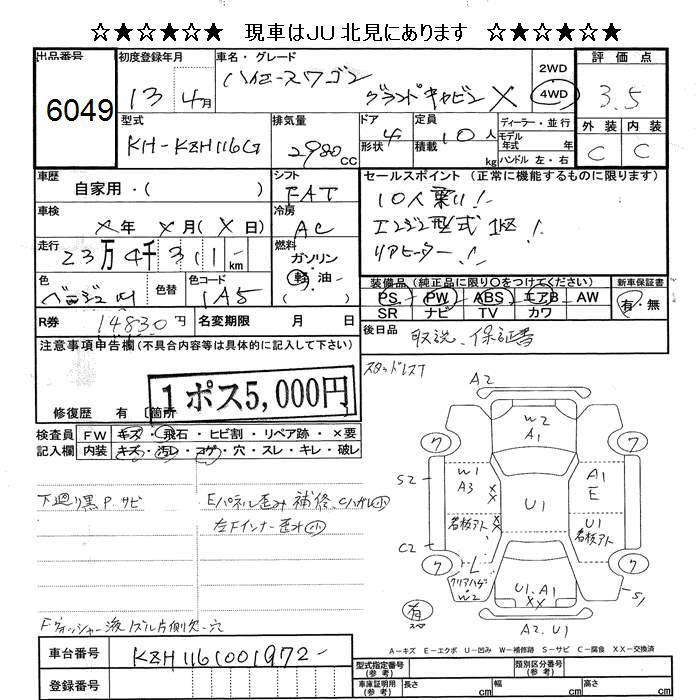 ☆★☆★☆★ 現車はJU北見にあります ☆★☆★☆★
出品番号 初度登録年月 車名・グレード 2WD 評価点
6049 13 4月 ハイエースワゴン グランドキャビン X 4WD 3.5
型式 排気量 ドア 形状 定員 積載 ディーラー・並行 外装 内装
KH-KZH116G 2980cc 4 10人 kg モデル年式 年 ハンドル 左・右 C C
車歴 シフト セールスポイント (正常に機能するものに限ります)
自家用・( ) FAT 10人乗り!
車検 冷房
X年 X月(X日) AC エンジン型式 1KZ!
走行 燃料
23万4千311km ガソリン リアヒーター!
軽油
色 色替 色コード 装備品(純正品に限り○をつけてください) 新車保証書
ベージュM 1A5 PS PW ABS エアB AW 有・無
SR ナビ TV カワ
R券 14830円 名変期限 月 日 後日品 取説、保証書
注意事項申告欄(不具合内容等は具体的に記入して下さい) スタッドレスT
1ポス5,000円
修復歴 有 [箇所
検査員 FW キズ・飛石・ヒビ割・リペア跡・×要
記入欄 内装 キズ・汚レ・コゲ・穴・スレ・キレ・破レ
下廻り黒P.サビ Eパネル歪み補修、Cハガレ小
左Fインナー歪み小
Fウォッシャー液ノズル片側欠、穴
A2
ワ W2 A1 ワ
S2 W1 A3 XX U1 A1 E
看板アト XX U1 看板アト
C2
ワ L U1.A1 XX ワ
クリアハゲ W2 S1
有 スペ
A2.U1
A-キズ E-エクボ U-凹み W-補修跡 S-サビ C-腐食 XX-交換済
車台番号 KZH116-1001972- 型式指定番号(参考) 類別区分番号(参考)
登録番号 車庫証明用(参考) 長さ cm 幅 cm 高さ cm